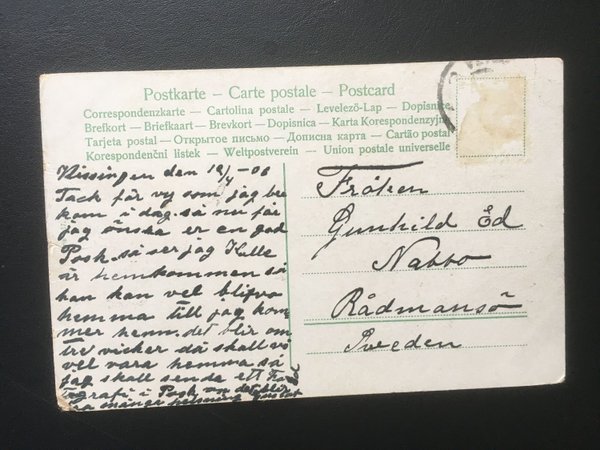 Postkarte – Carte postale – Postcard
Correspondenzkarte – Cartolina postale – Levelező-Lap – Dopisnice
Brefkort – Briefkaart – Brevkort – Dopisnica – Karta Korespondenzyjna
Tarjeta postal – Открытое письмо – Дописна карта – Cartão postal
Korespondenční listek – Weltpostverein – Union postale universelle
Kissingen den 19/4-06
Tack får vy som jag be
kom i dag. så nu får
jag önska er en gad
Posk. så ser jag Kalle
är hemkommen så
han kan vel blifva
hemma till jag kom
mer hemm. det blir om
tre vicker då skall vi
vel vara hemma så
jag skall sende ett Fo
tografi i Posk nu det blir
bra många helsning Gustaf
Fröken
Gunhild Ed
Nabbo
Rådmansö
Sweden